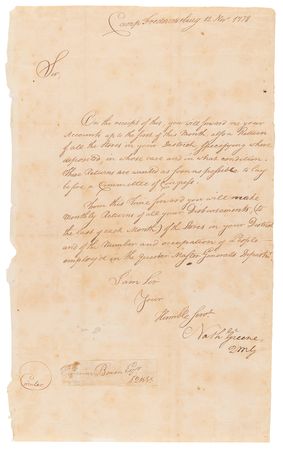 Camp Fredericksburg 12 Nov 1778
Sir,
On the receipt of this, you will forward me your
Accounts up to the first of this Month also a Return
of all the Stores in your District specifying where
deposited, in whose care and in what condition.
These Returns are wanted as soon as possible to lay
before a Committee of Congress.
From this time forward you will make
Monthly Returns of all your Disbursements, (to
the last of each Month) of the Stores in your District
and of the Number and occupation of People
employ'd in the Quarter Master Generals Departmt.
I am Sir
Your
Humble Servt
Nath Greene
QMG
Bowen Esqr